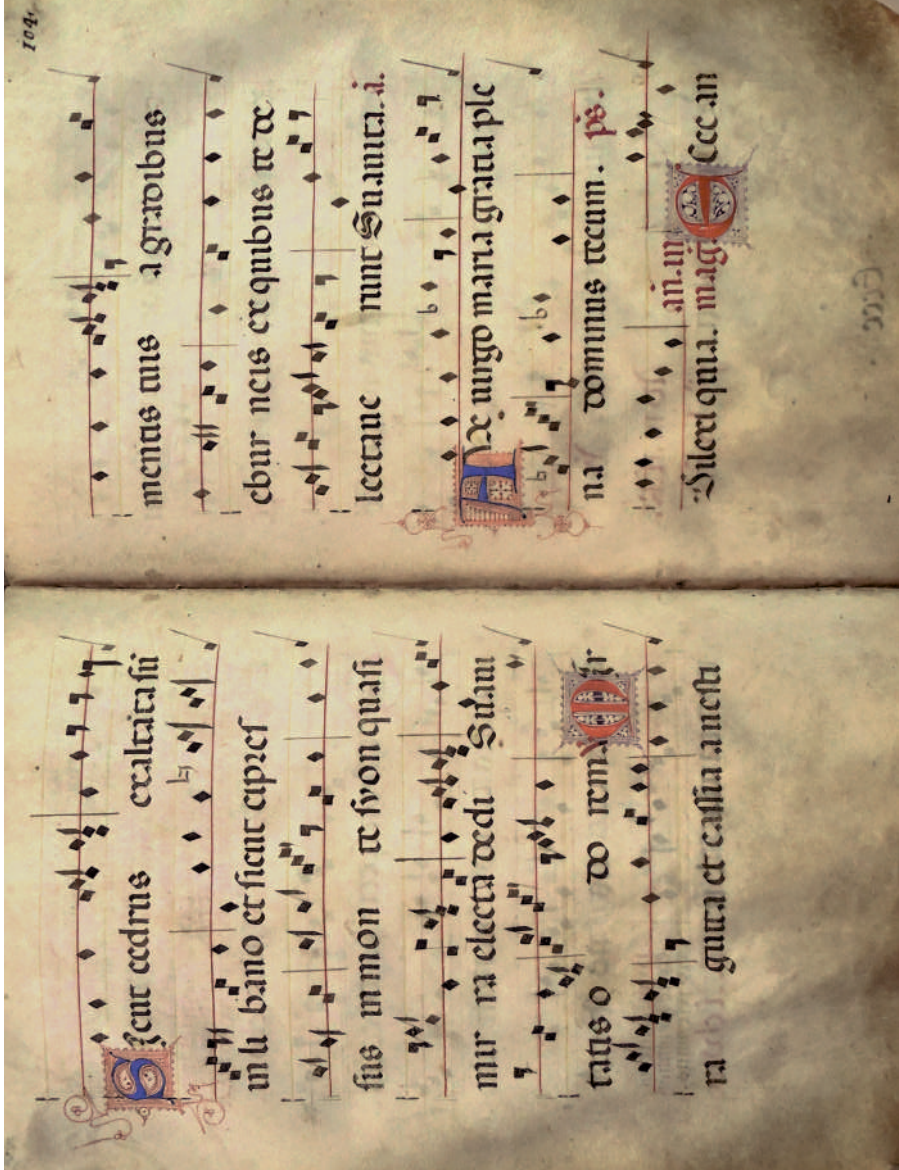 Sicut cedrus exaltata sū
in li bano et sicut cipres
sus in mon te syon quasi
mir ra electa dedi Suaui
tatis o do rem Mir
ra gutta et cassia a uesti
104
mentis tuis a gradibus
ebur neis ex quibus te de
lectaue runt Suauita. a.
Aue uirgo maria gratia ple
na dominus tecum. ps.
Dilexi quia. an. in mag. Ecce an